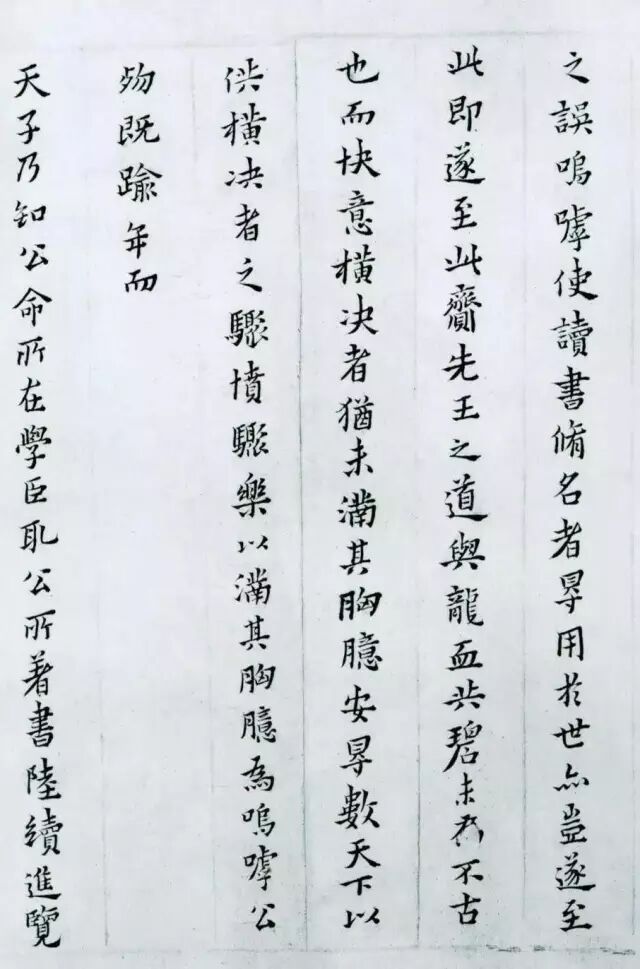 之誤嗚嘑使讀書脩名者㝵用於世亦豈遂至
此即遂至此齎先王之道與龍血共碧未爲不古
也而快意橫决者猶未滿其胸臆安㝵數天下以
供橫决者之驟憤驟樂以滿其胸臆為嗚嘑公
歾既踰年而
天子乃知公命所在學臣取公所著書陸續進覽